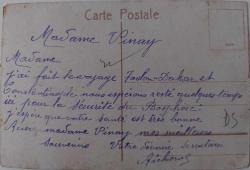 Carte Postale
Madame Vinay
Madame
J'ai fait le voyage Dakar et
Constantinople nous espérons resté quelques temps
ici pour la sécurité du Bosphore
J'espère que votre santé est très bonne
Avec madame Vinay mes meilleurs
Souvenirs Votre
DS